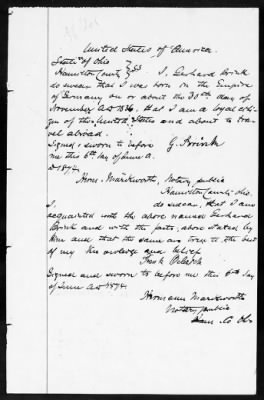 United States of America.
State of Ohio
Hamilton County } SS I, Gerhard Brink
do swear that I was born in the Empire
of Germany on or about the 30th day of
November A.D. 1836, that I am a loyal citi-
zen of the United States and about to tra-
vel abroad.
Signed & sworn to before G. Brink
me this 6th day of June A.
D 1874.
Herm. Markworth, Notary public
Hamilton County, Ohio
I. do swear, that I am
acquainted with the above named Gerhard
Brink and with the facts, above stated by
him and that the same are true to the best
of my knowledge and belief.
Frank
Signed and sworn to before me this 6th day
of June A.D. 1874.
Hermann Markworth
Notary public
Ham. Co. Oh.